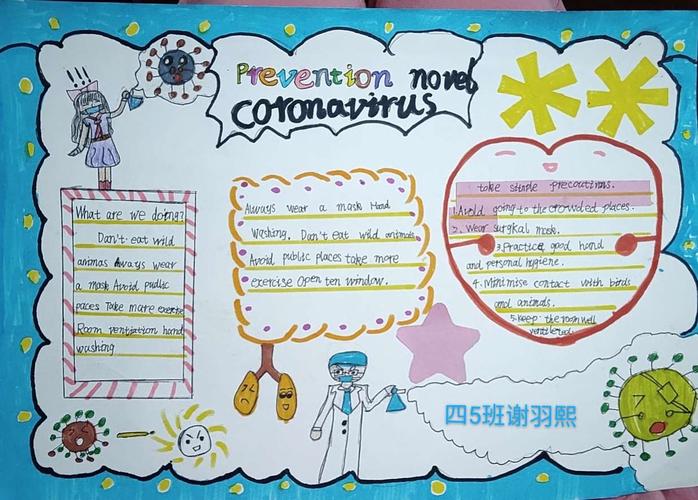 Prevention novel
coronavirus
What are we doing?
Dan't eat wild
animas Always wear
a mask Avoid public
paces Take mare exercise
Room ventiation hand
washing
Always wear a mask Hand
Washing. Dan't eat wild animals
Avoid public places take more
exercise Open ten window.
take simple precautions.
1.Avoid going to the crowded places.
2. Wear surgikal mosk.
3.Practice good hand
and personal hygiene.
4.Minimise contact with birds
and animals.
5.keep the room well
ventilered
四5班谢羽熙